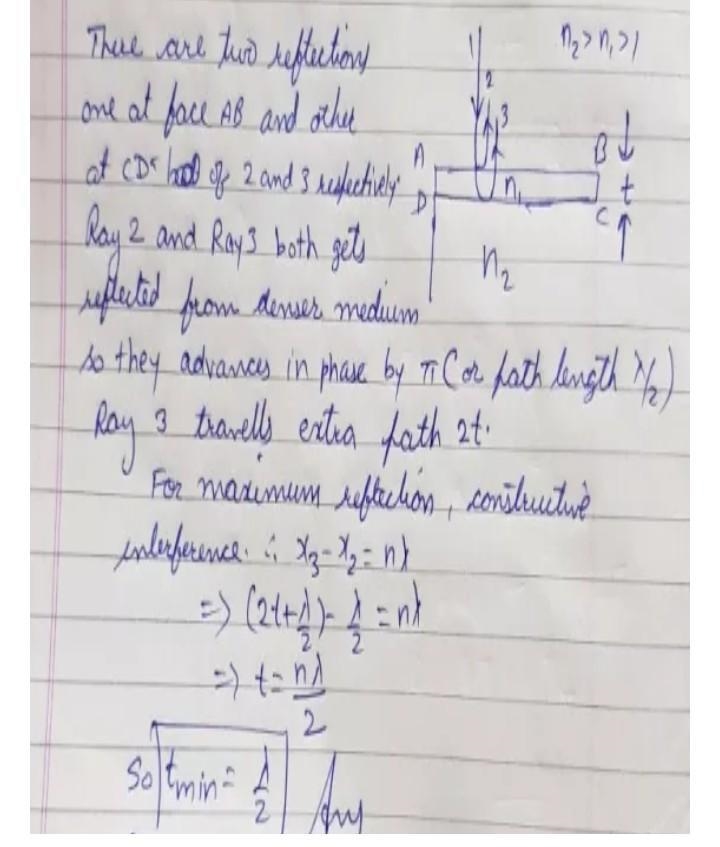 There are two reflections
n₂>n₁>1
one at face AB and other
at CD of 2 and 3 respectively
Ray 2 and Ray 3 both gets
reflected from denser medium
so they advances in phase by π (or path length λ/2)
Ray 3 travells extra path 2t.
For maximum reflection, constructive
interference. ∴ x₃-x₂ = nλ
=> (2t+λ/2)-λ/2 = nλ
=> t = nλ/2
So tmin = λ/2 Ans
1
2
3
A
B
D
n₁
C
t
n₂